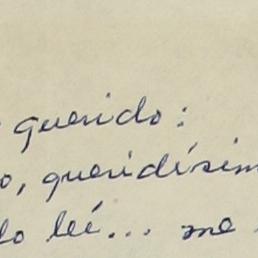 querido:
o, queridísim
do leí... me